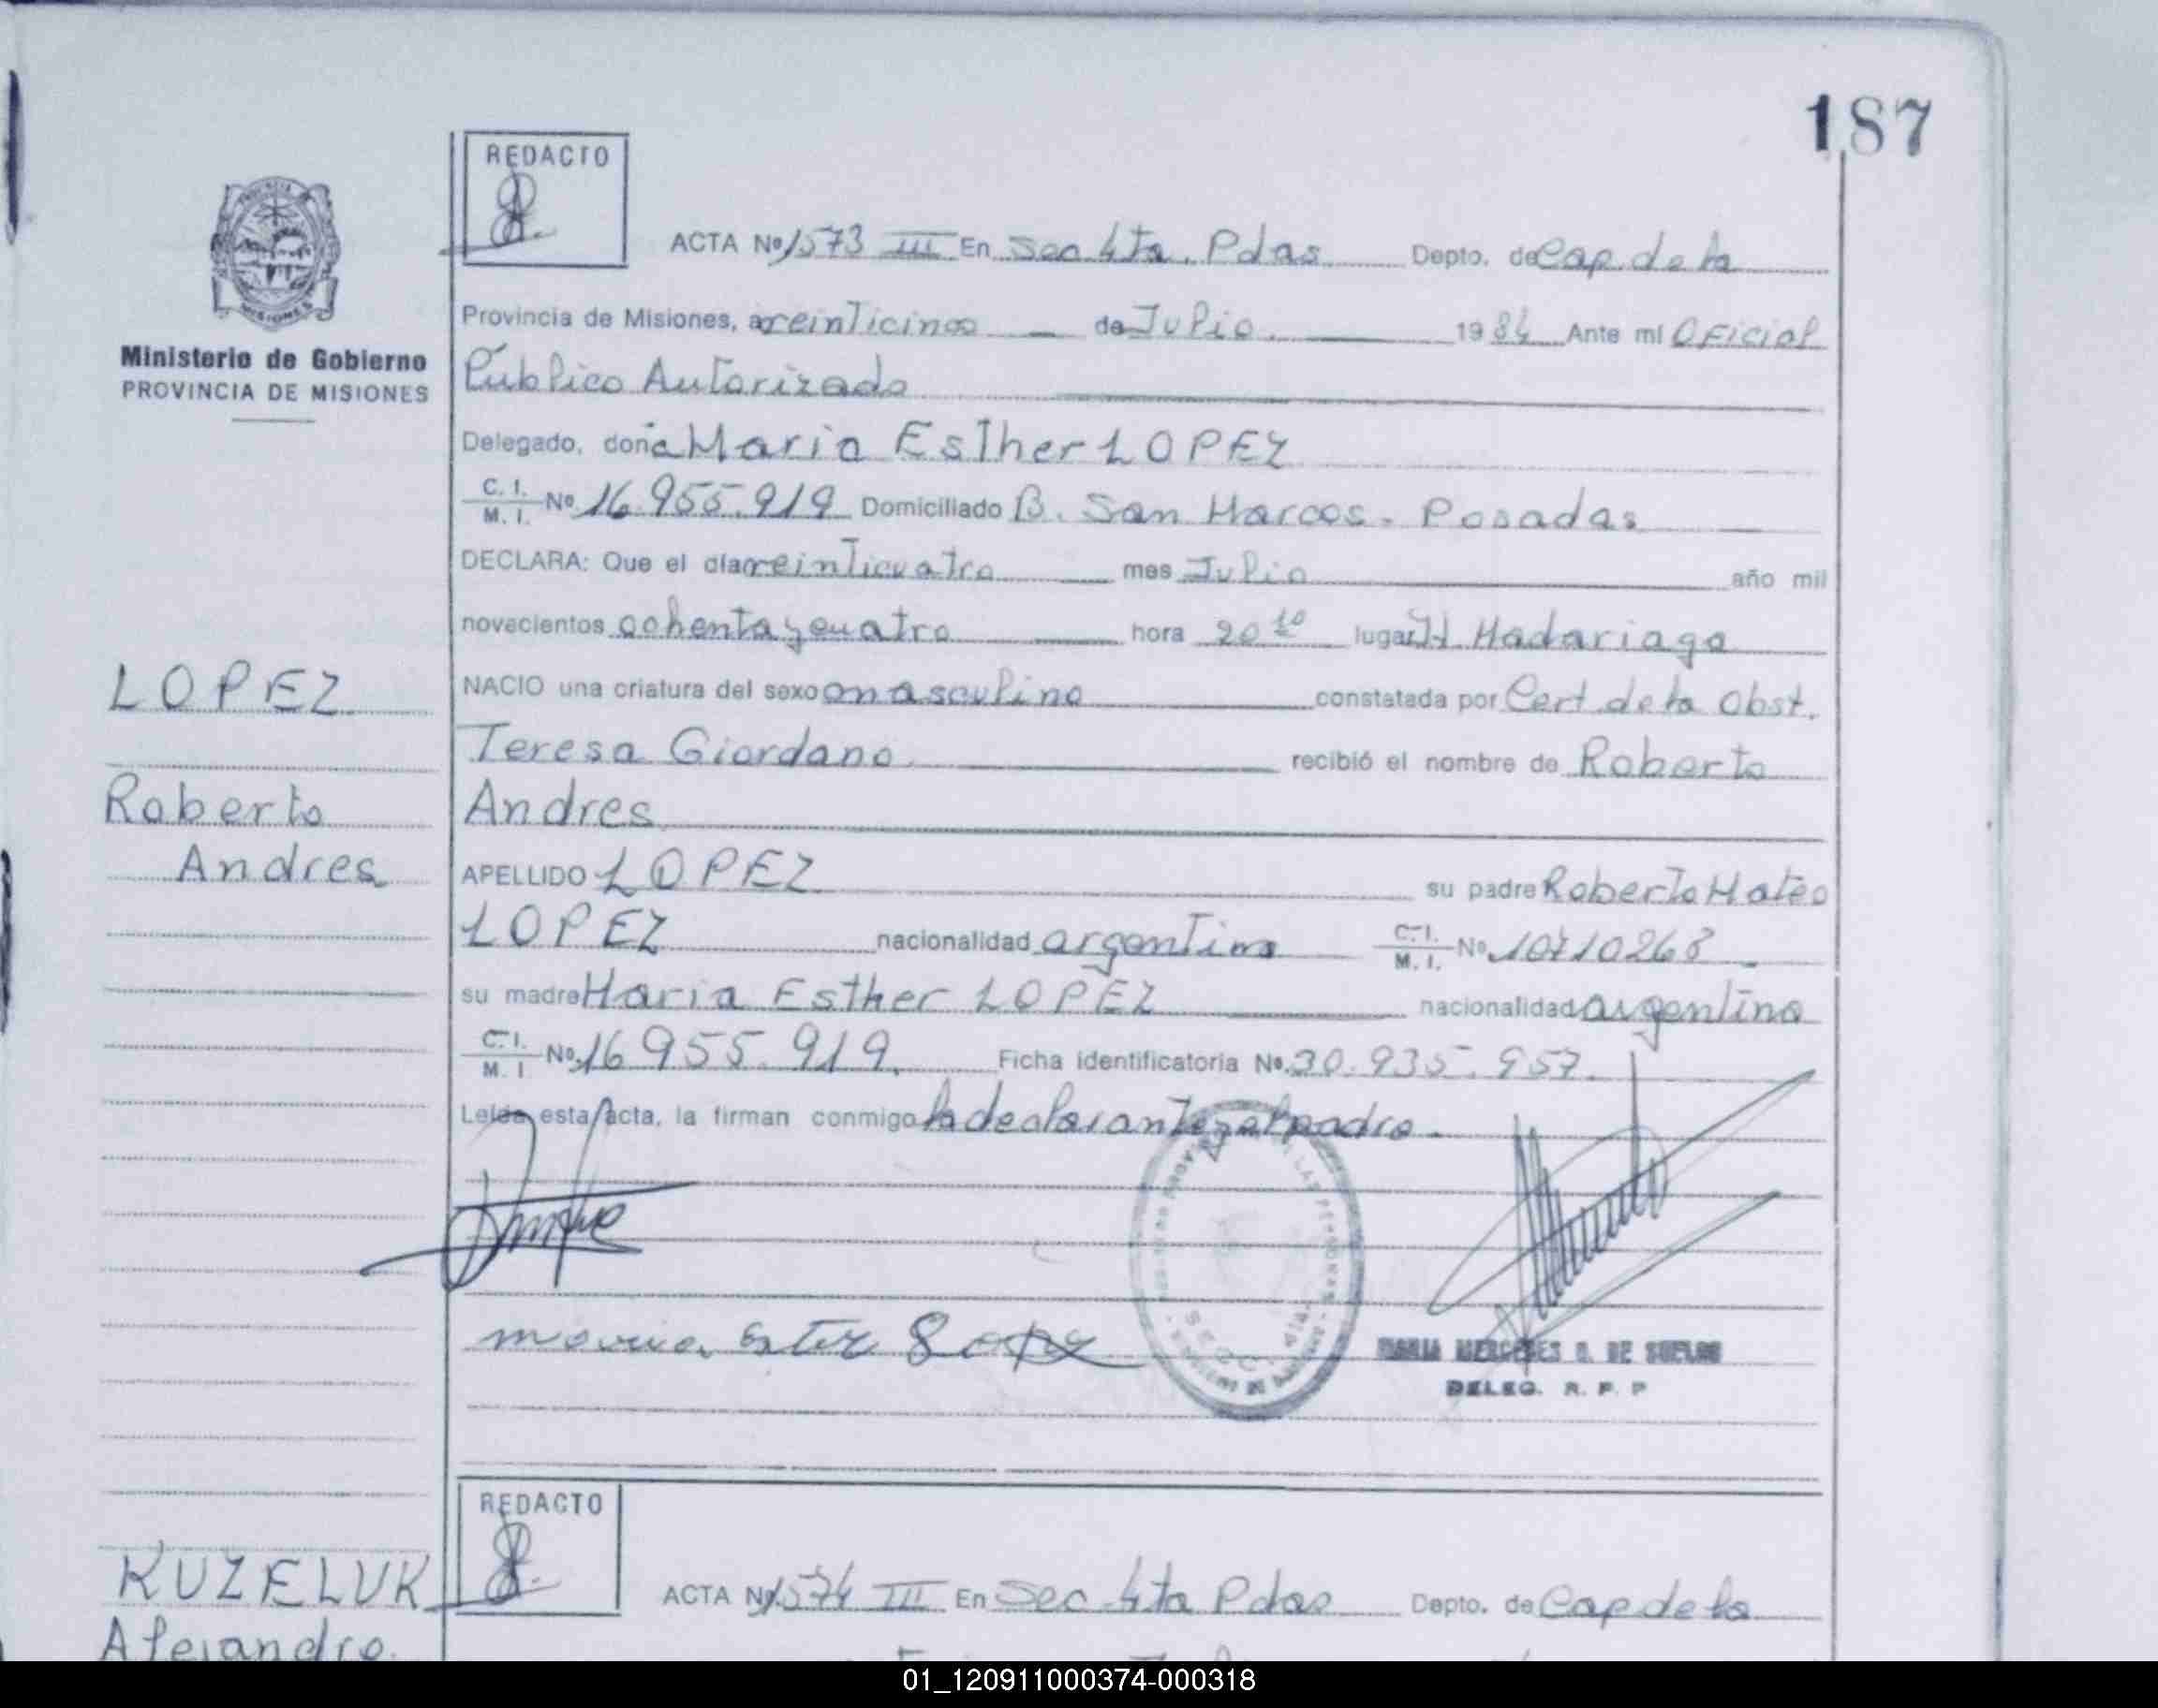 187
REDACTO
ACTA Nº 1573 III En Sec 4ta. Pdas Depto. de Cap. de la
Provincia de Misiones, a veinticinco de Julio. 1984 Ante mí Oficial
Público Autorizado
Ministerio de Gobierno
PROVINCIA DE MISIONES
Delegado, doña Maria Esther LOPEZ
C. I. M. I. Nº 16.955.919 Domiciliado B. San Marcos - Posadas
DECLARA: Que el día veinticuatro mes Julio año mil
novecientos ochenta y cuatro hora 20 10 lugar H Madariaga
NACIO una criatura del sexo masculino constatada por Cert. de la Obst.
Teresa Giordano recibió el nombre de Roberto
Andres
APELLIDO LOPEZ su padre Roberto Mateo
LOPEZ nacionalidad argentino C.I. M. I. Nº 10710268
su madre Maria Esther LOPEZ nacionalidad argentina
C.I. M. I Nº 16955.919. Ficha identificatoria Nº 30.935.957.
Leída esta acta, la firman conmigo la declarante y el padre.
LOPEZ
Roberto
Andres
maria Ester Lopez
MARIA MERCEDES DE
DELEG. R. P. P
REDACTO
ACTA Nº 1574 III En Sec 4ta Pdas Depto. de Cap de la
KUZELUK
Alejandro.
01_120911000374-000318